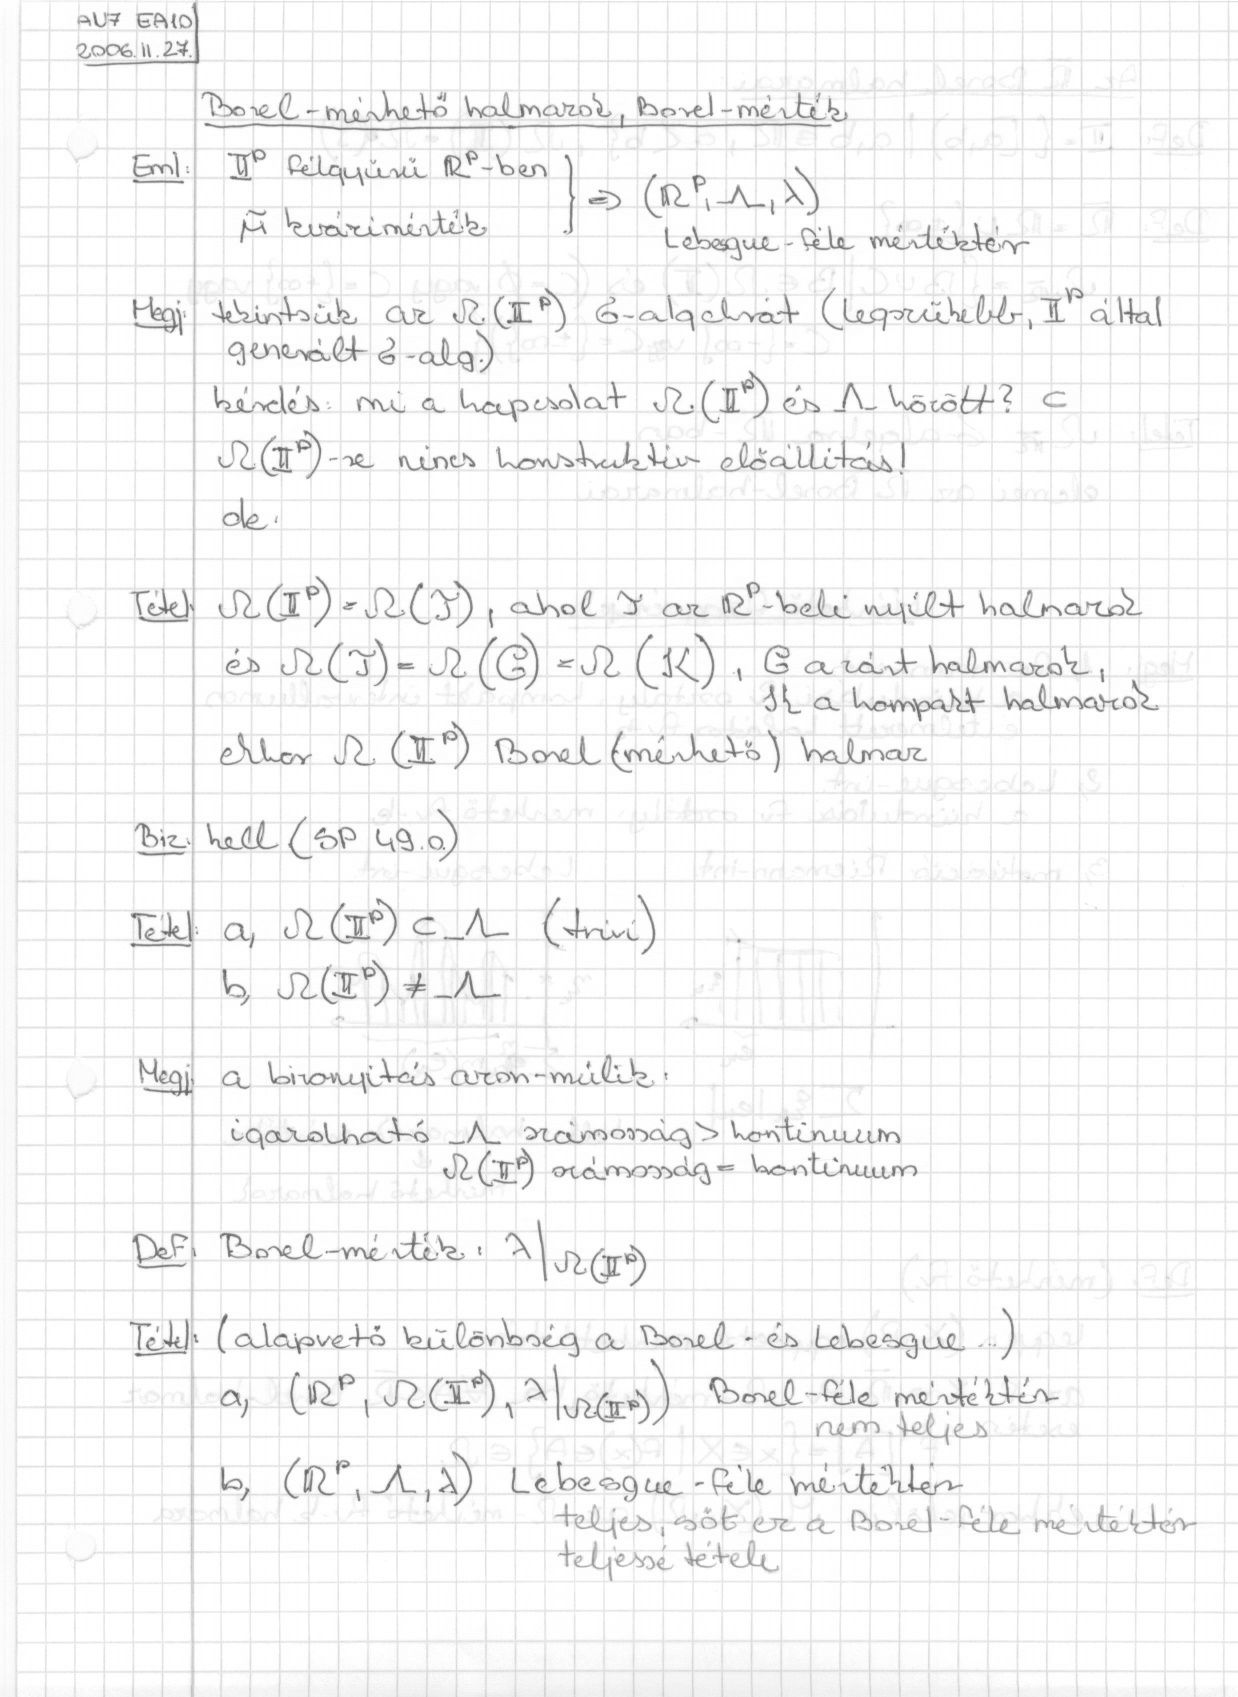 AU7 EA10
2006.11.27.
Borel-mérhető halmazok, Borel-mérték
Eml: 𝕀ᵖ félgyűrű ℝᵖ-ben
μ̃ kvázimérték } ⇒ (ℝᵖ, Λ, λ)
Lebesgue-féle mértéktér
Megj: tekintsük az Ω(𝕀ᵖ) σ-algebrát (legszűkebb, 𝕀ᵖ által
generált σ-alg.)
kérdés: mi a kapcsolat Ω(𝕀ᵖ) és Λ között? ⊂
Ω(𝕀ᵖ)-re nincs konstruktív előállítás!
de:
Tétel: Ω(𝕀ᵖ) = Ω(𝒯), ahol 𝒯 az ℝᵖ-beli nyílt halmazok
és Ω(𝒯) = Ω(ℭ) = Ω(𝒦), ℭ a zárt halmazok,
𝒦 a kompakt halmazok
ekkor Ω(𝕀ᵖ) Borel (mérhető) halmaz
Biz: kell (SP 49.o.)
Tétel: a, Ω(𝕀ᵖ) ⊂ Λ (trivi)
b, Ω(𝕀ᵖ) ≠ Λ
Megj: a bizonyítás azon múlik:
igazolható Λ számosság > kontinuum
Ω(𝕀ᵖ) számosság = kontinuum
Def: Borel-mérték: λ|Ω(𝕀ᵖ)
Tétel: (alapvető különbség a Borel- és Lebesgue ...)
a, (ℝᵖ, Ω(𝕀ᵖ), λ|Ω(𝕀ᵖ)) Borel-féle mértéktér
nem teljes
b, (ℝᵖ, Λ, λ) Lebesgue-féle mértéktér
teljes, sőt ez a Borel-féle mértéktér
teljessé tétele